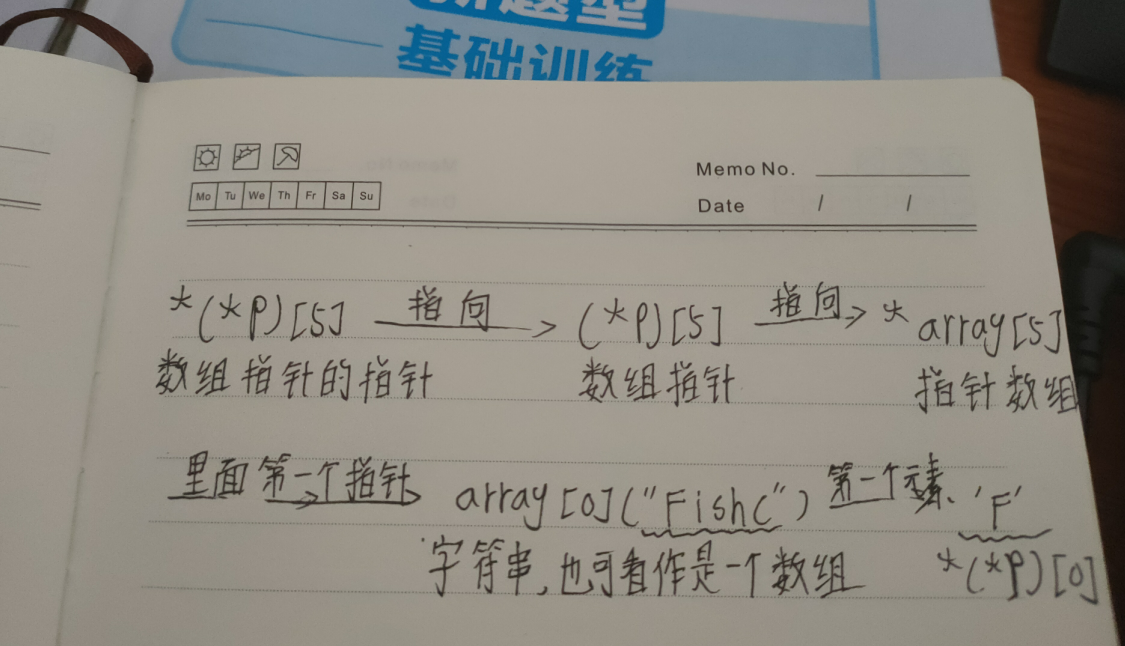 新题型
基础训练
Memo No.
Mo Tu We Th Fr Sa Su
Date / /
*(*p)[5] 指向 (*p)[5] 指向 * array[5]
数组指针的指针 数组指针 指针数组
里面第一个指针 array[0]("FishC") 第一个元素、'F'
字符串,也可看作是一个数组 *(*p)[0]